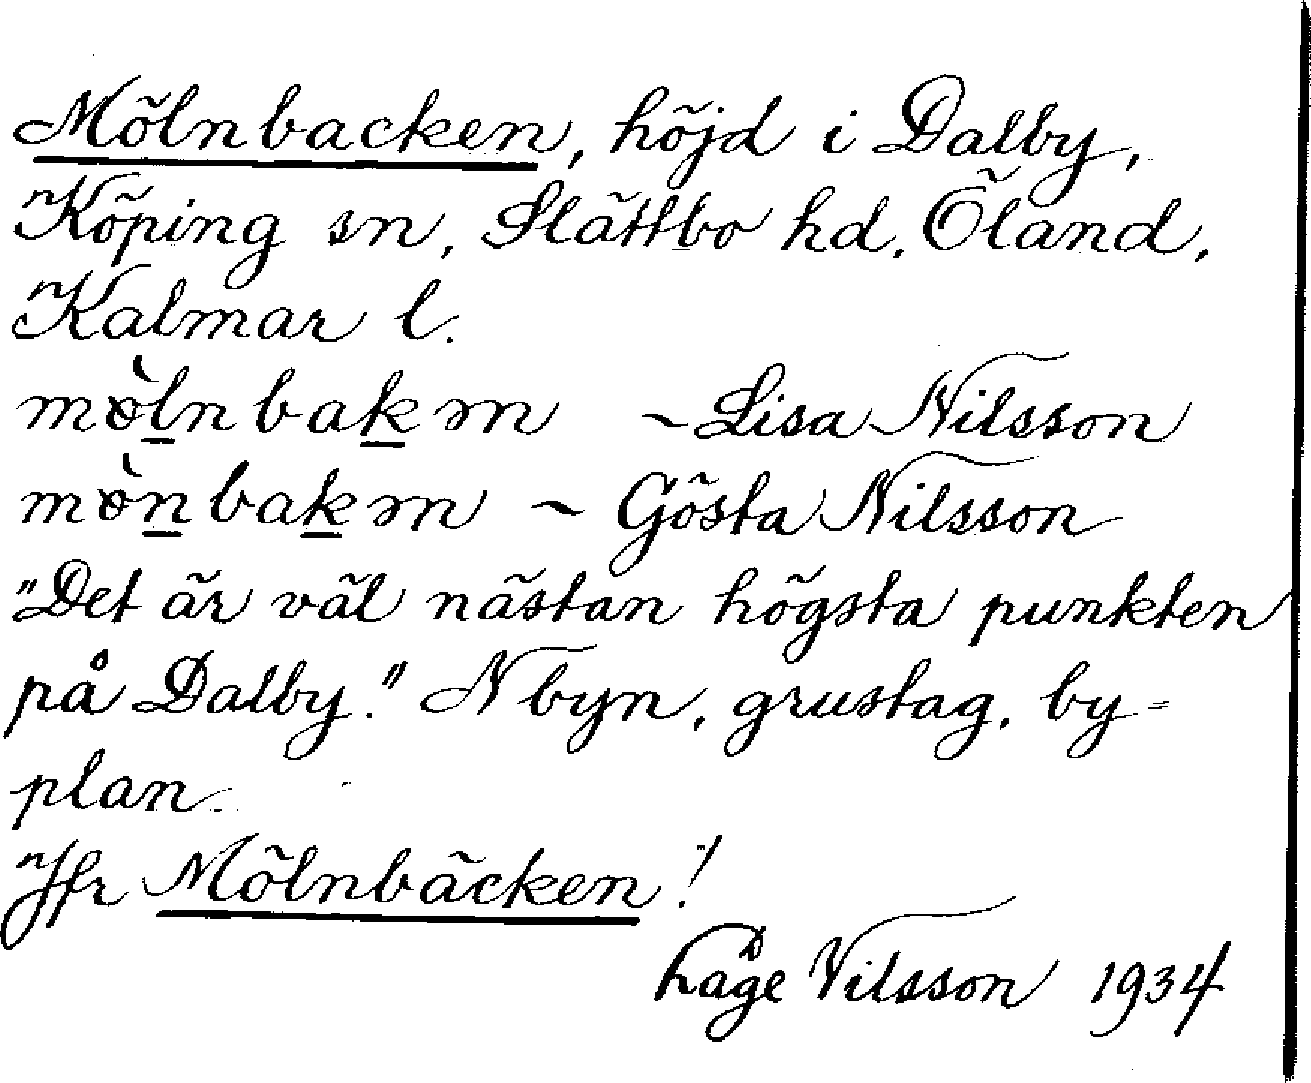 Mölnbacken, höjd i Dalby,
Köping sn, Slättbo hd, Öland,
Kalmar l.
mö̀lnbakm ~ Lisa Nilsson
mö̀nbakm ~ Gösta Nilsson
"Det är väl nästan högsta punkten
på Dalby." N byn, grustag, by-
plan.
Jfr Mölnbäcken!
Nilsson 1934